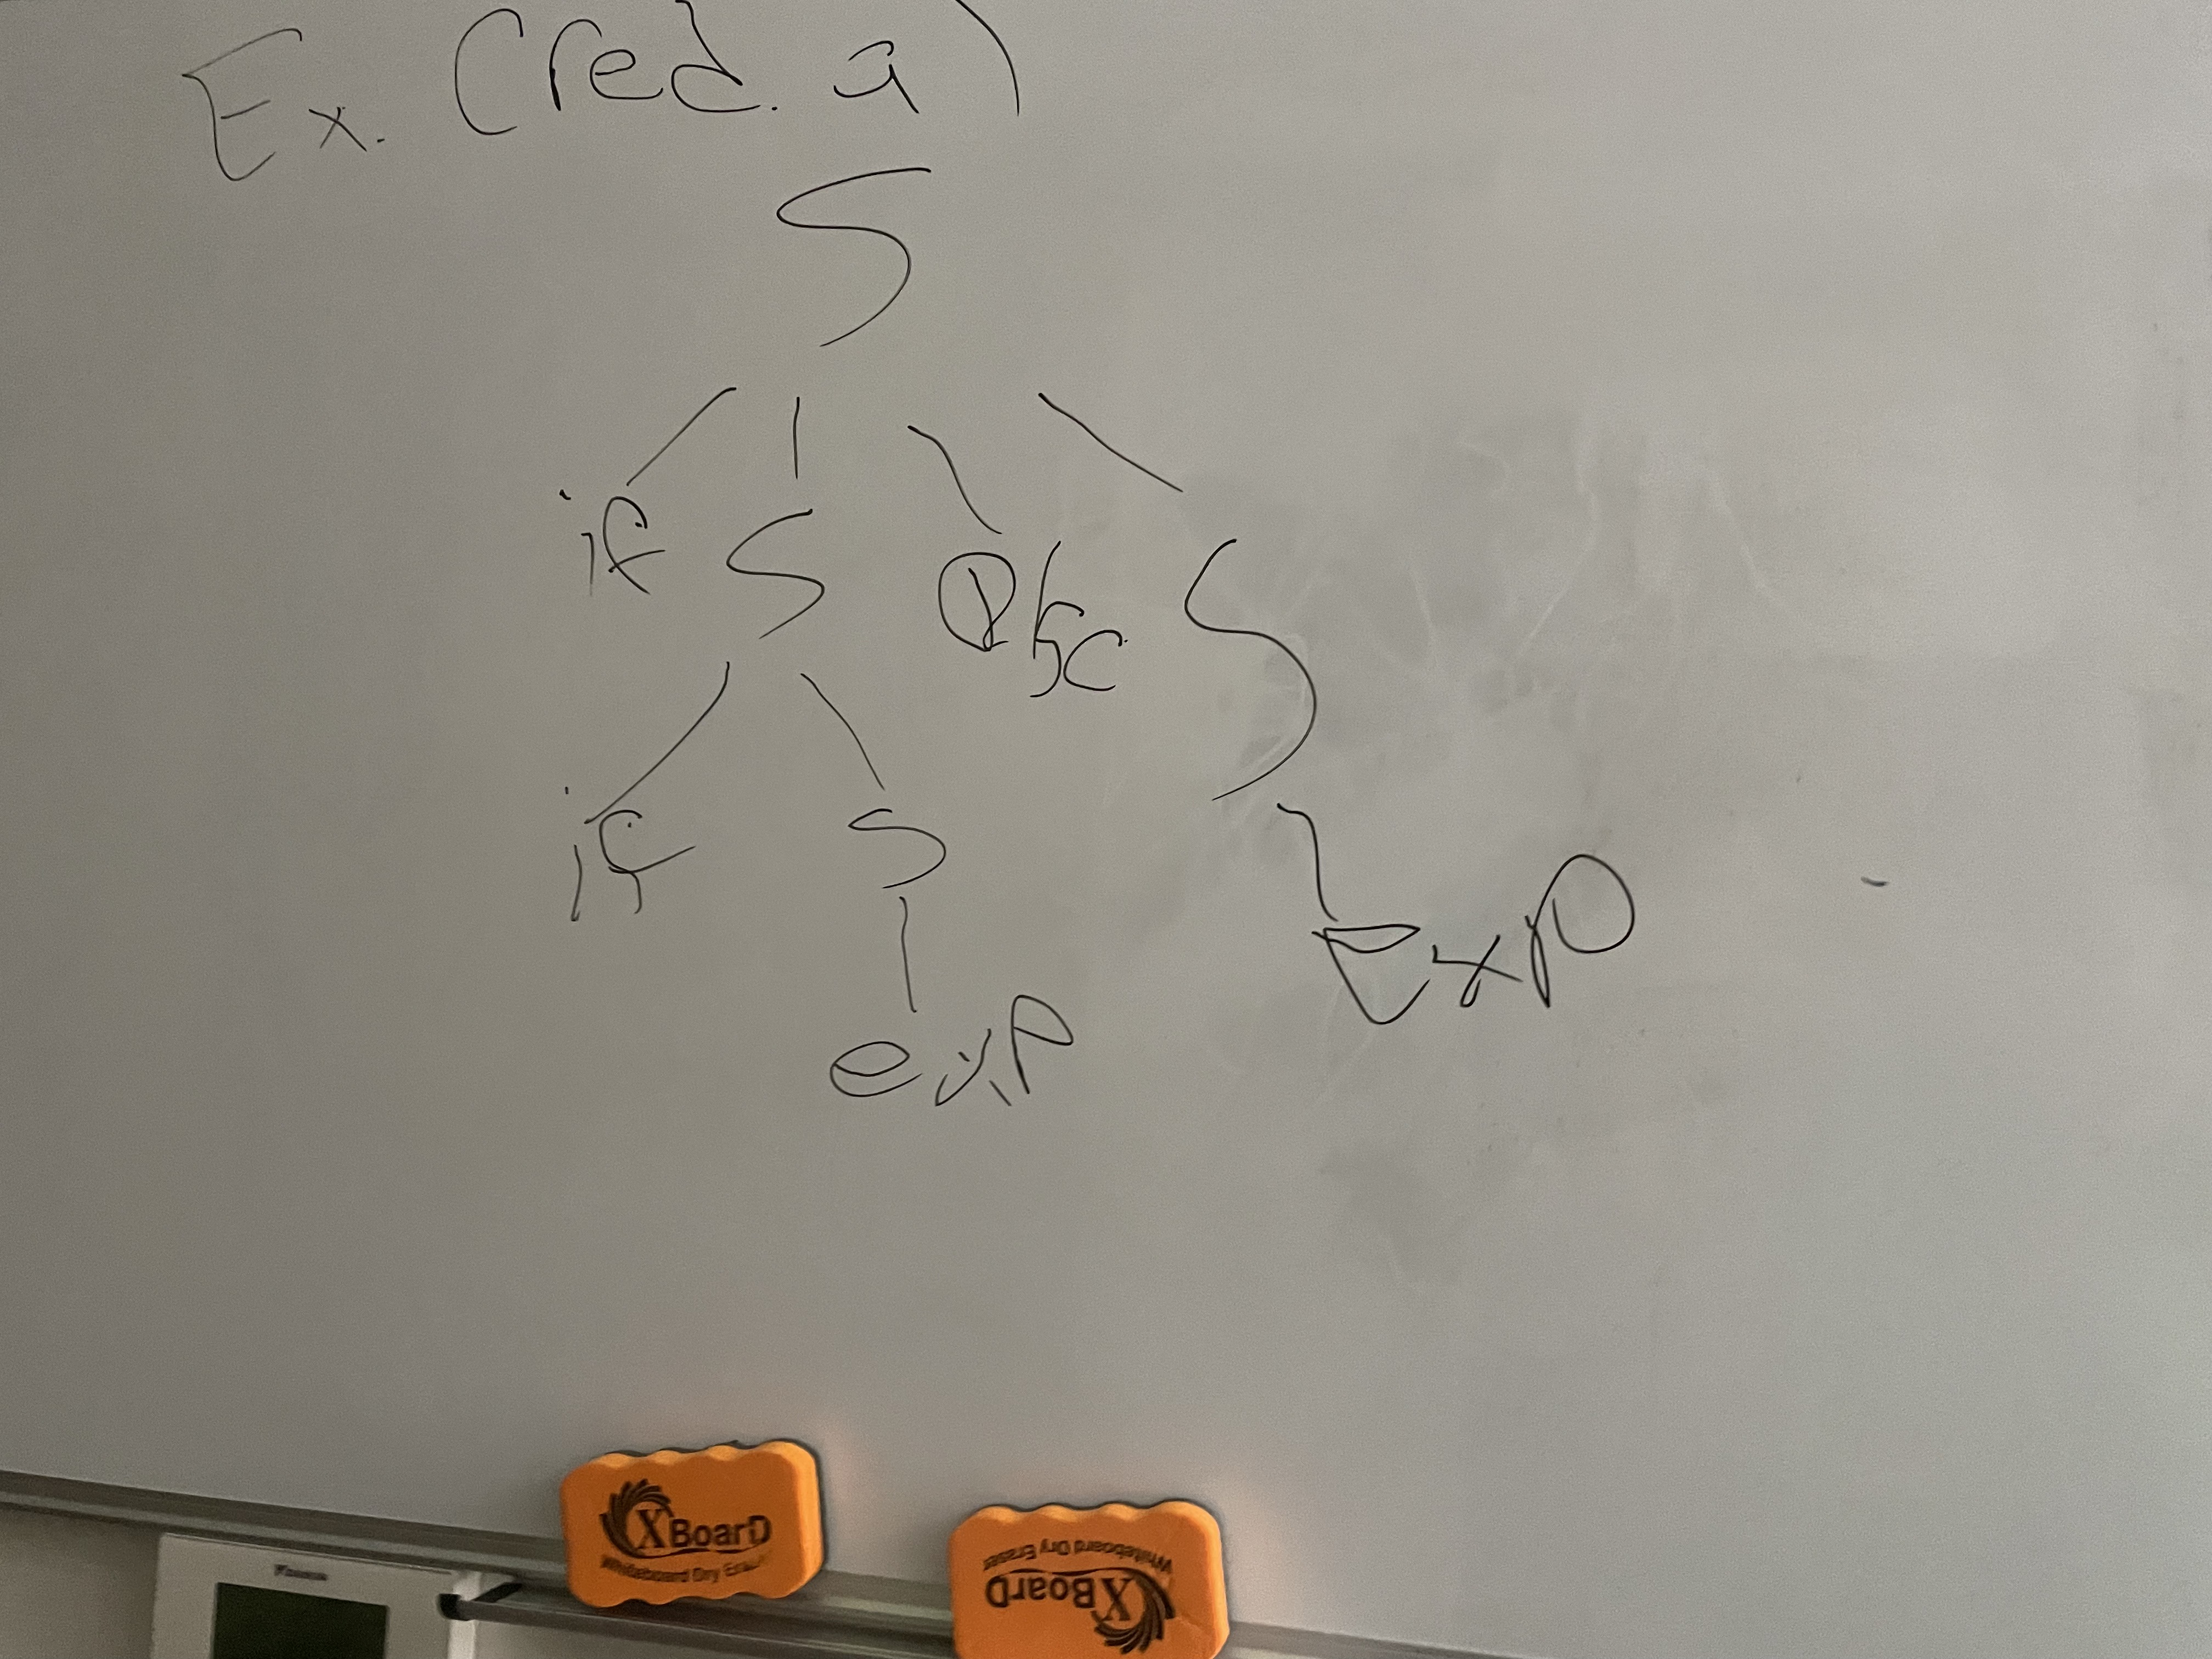 Ex. Cred. a)
S
if S S
if S
exp
exp
XBoarD
Whiteboard Dry Eraser
XBoarD
Whiteboard Dry Eraser